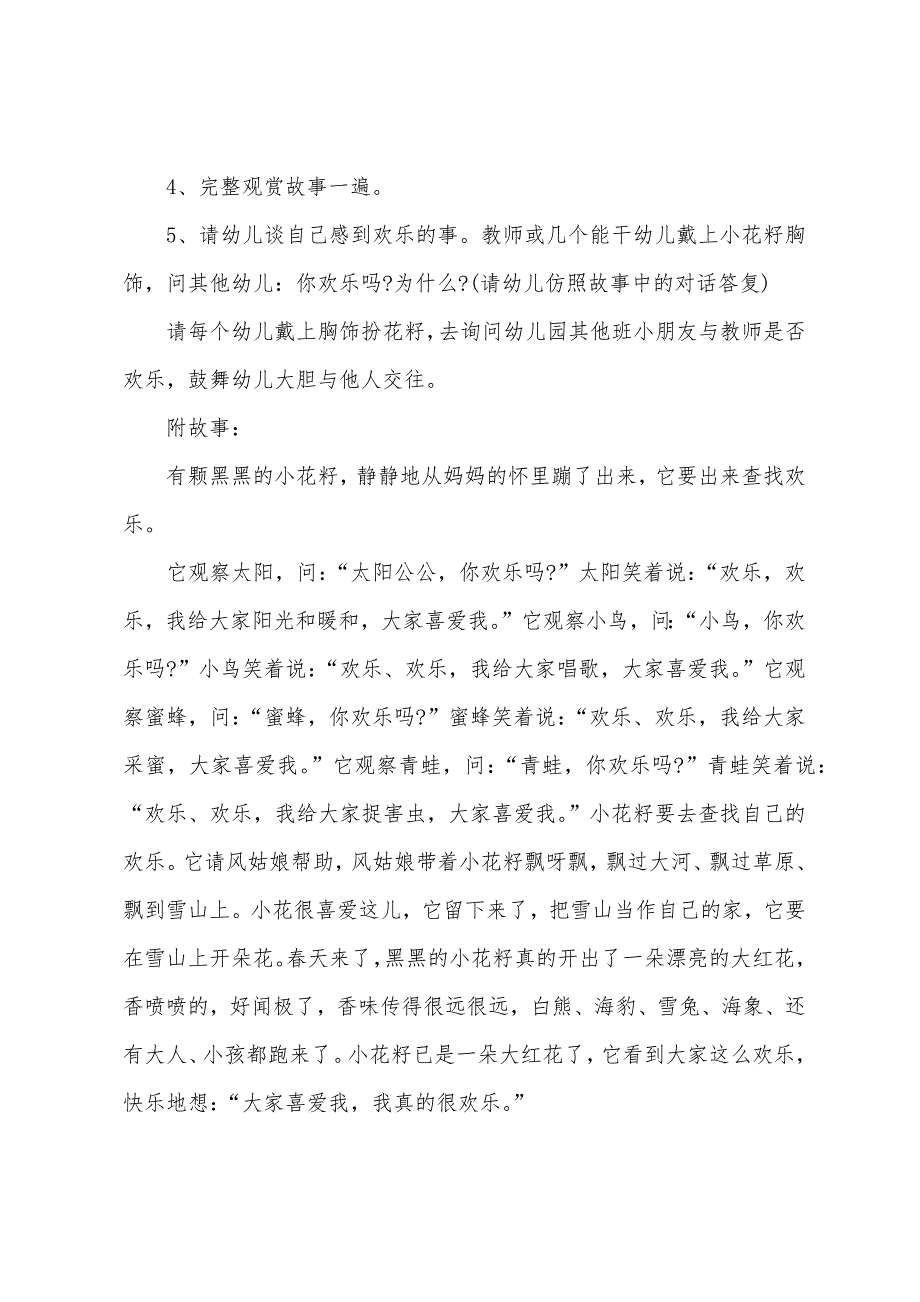 4、完整观赏故事一遍。
5、请幼儿谈自己感到欢乐的事。教师或几个能干幼儿戴上小花籽胸
饰，问其他幼儿：你欢乐吗?为什么?(请幼儿仿照故事中的对话答复)
请每个幼儿戴上胸饰扮花籽，去询问幼儿园其他班小朋友与教师是否
欢乐，鼓舞幼儿大胆与他人交往。
附故事：
有颗黑黑的小花籽，静静地从妈妈的怀里蹦了出来，它要出来查找欢
乐。
它观察太阳，问：“太阳公公，你欢乐吗?”太阳笑着说：“欢乐，欢
乐，我给大家阳光和暖和，大家喜爱我。”它观察小鸟，问：“小鸟，你欢
乐吗?”小鸟笑着说：“欢乐、欢乐，我给大家唱歌，大家喜爱我。”它观
察蜜蜂，问：“蜜蜂，你欢乐吗?”蜜蜂笑着说：“欢乐、欢乐，我给大家
采蜜，大家喜爱我。”它观察青蛙，问：“青蛙，你欢乐吗?”青蛙笑着说：
“欢乐、欢乐，我给大家捉害虫，大家喜爱我。”小花籽要去查找自己的
欢乐。它请风姑娘帮助，风姑娘带着小花籽飘呀飘，飘过大河、飘过草原、
飘到雪山上。小花很喜爱这儿，它留下来了，把雪山当作自己的家，它要
在雪山上开朵花。春天来了，黑黑的小花籽真的开出了一朵漂亮的大红花，
香喷喷的，好闻极了，香味传得很远很远，白熊、海豹、雪兔、海象、还
有大人、小孩都跑来了。小花籽已是一朵大红花了，它看到大家这么欢乐，
快乐地想：“大家喜爱我，我真的很欢乐。”